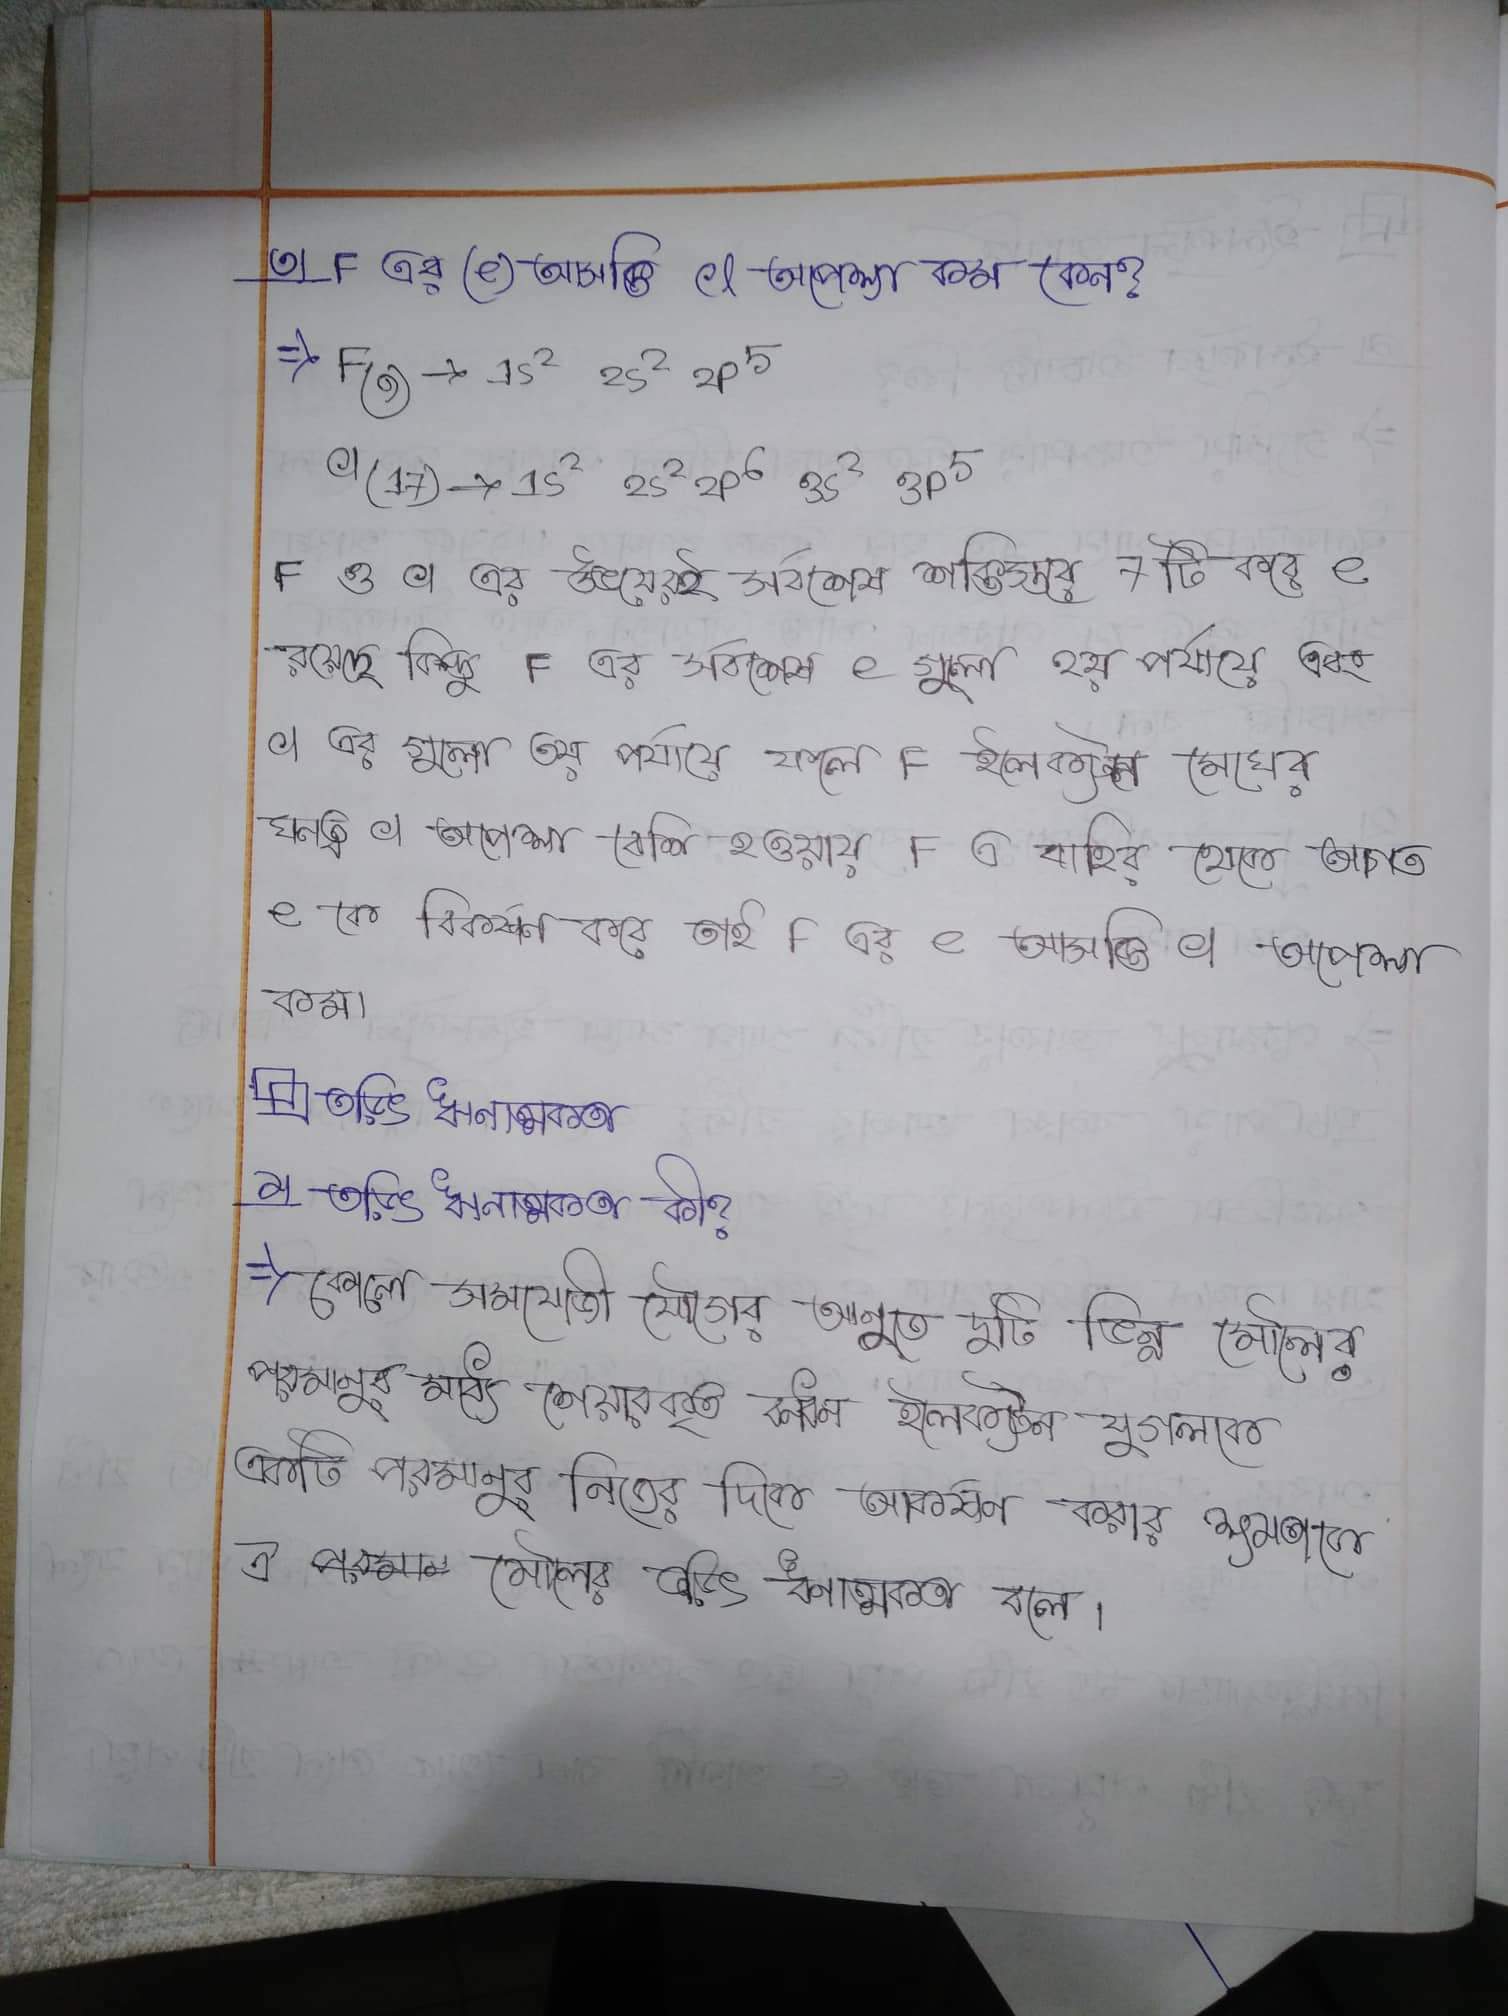 ৩। F এর (e) আসক্তি Cl অপেক্ষা কম কেন?
⇒ F(9) → 1s² 2s² 2p⁵
Cl(17) → 1s² 2s² 2p⁶ 3s² 3p⁵
F ও Cl এর উভয়েরই সর্বশেষ শক্তিস্তরে 7টি করে e
রয়েছে কিন্তু F এর সর্বশেষ e গুলো ২য় পর্যায়ে এবং
Cl এর গুলো ৩য় পর্যায়ে ফলে F ইলেকট্রন মেঘের
ঘনত্ব Cl অপেক্ষা বেশি হওয়ায় F এ বাহির থেকে আগত
e কে বিকর্ষন করে তাই F এর e আসক্তি Cl অপেক্ষা
কম।
তড়িৎ ঋনাত্মকতা
১। তড়িৎ ঋনাত্মকতা কী?
⇒ কোনো সমযোজী যৌগের অনুতে দুটি ভিন্ন মৌলের
পরমানুর মধ্যে শেয়ারকৃত বন্ধন ইলেকট্রন যুগলকে
একটি পরমানুর নিজের দিকে আকর্ষন করার ক্ষমতাকে
ঐ মৌলের তড়িৎ ঋনাত্মকতা বলে।